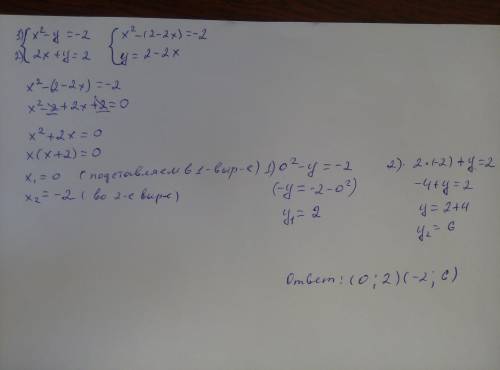 1) { x² - y = -2   { x² - (2 - 2x) = -2
2) { 2x + y = 2   { y = 2 - 2x
x² - (2 - 2x) = -2
x² - 2 + 2x + 2 = 0
x² + 2x = 0
x(x + 2) = 0
x₁ = 0 (подставляем в 1-выр-е)
x₂ = -2 (во 2-е выр-е)
1) 0² - y = -2
(-y = -2 - 0²)
y₁ = 2
2). 2·(-2) + y = 2
-4 + y = 2
y = 2 + 4
y₂ = 6
Ответ: (0; 2) (-2; 6)